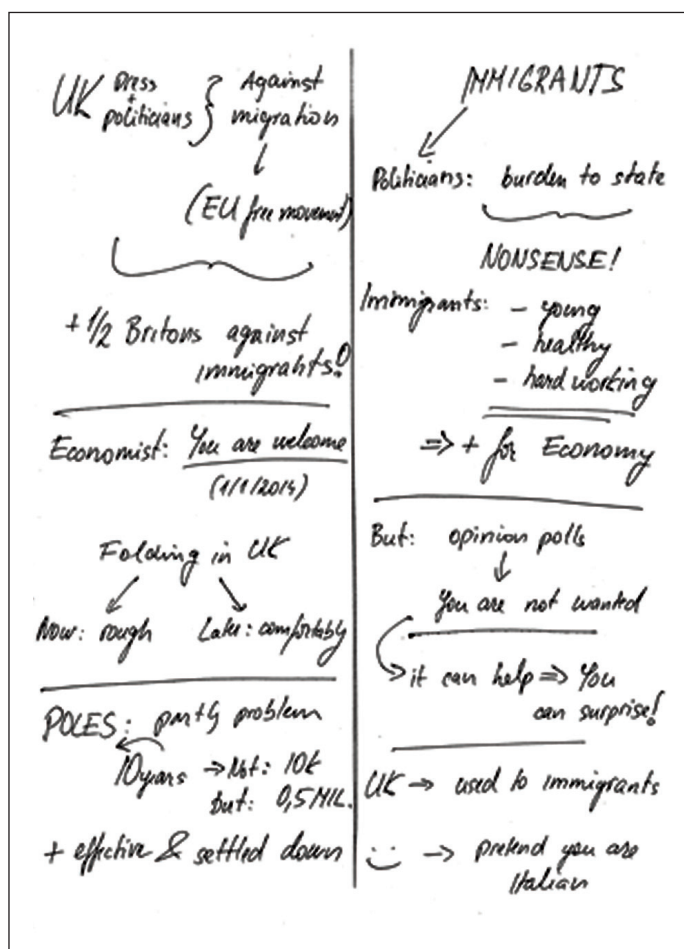 UK press + politicians } Against migration
↓
(EU free movement)
+ 1/2 Britons against
immigrants!
Economist: You are welcome
(1/1/2014)
Folding in UK
Now: rough Late: comfortably
POLES: partly problem
10 years → Not: 10k
but: 0,5 MIL.
+ effective & settled down
IMMIGRANTS
Politicians: burden to state
NONSENSE!
Immigrants: - young
- healthy
- hard working
⇒ + for Economy
But: opinion polls
↓
You are not wanted
it can help ⇒ You
can surprise!
UK → used to immigrants
:) → pretend you are
Italian